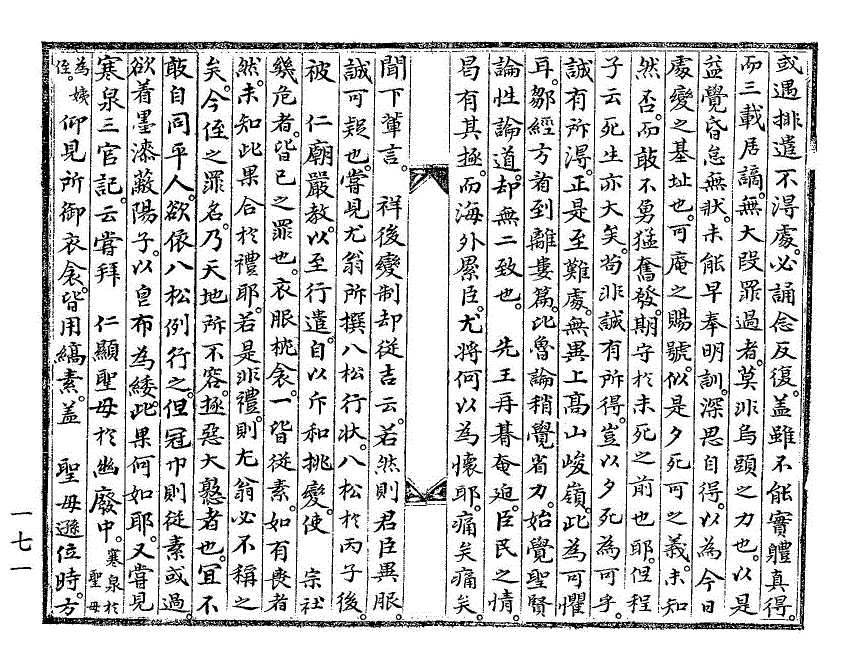 或遇排遣不得處。必誦念反復。蓋雖不能實體真得。
而三載居謫。無大段罪過者。莫非烏頭之力也。以是
益覺昏怠無狀。未能早奉明訓。深思自得。以為今日
處變之基址也。可庵之賜號。似是夕死可之義。未知
然否。而敢不勇猛奮發。期守於未死之前也耶。但程
子云死生亦大矣。苟非誠有所得。豈以夕死為可乎。
誠有所得。正是至難處。無異上高山峻嶺。此為可懼
耳。鄒經方看到離婁篇。比魯論稍覺省力。始覺聖賢
論性論道。却無二致也。 先王再朞奄迫。臣民之情。
曷有其極。而海外累臣。尤將何以為懷耶。痛矣痛矣。
聞下輩言。 祥後變制却從吉云。若然則君臣異服。
誠可疑也。嘗見尤翁所撰八松行狀。八松於丙子後。
被 仁廟嚴教。以至行遣。自以斥和挑變。使 宗社
幾危者。皆已之罪也。衣服枕衾。一皆從素。如有喪者
然。未知此果合於禮耶。若是非禮。則尤翁必不稱之
矣。今侄之罪名。乃天地所不容。極惡大憝者也。冝不
敢自同平人。欲依八松例行之。但冠巾則從素或過。
欲着墨漆蔽陽子。以皂布為緌。此果何如耶。又嘗見
寒泉三官記。云嘗拜 仁顯聖母於幽廢中。寒泉於聖母
為姨侄。仰見所御衣衾。皆用縞素。蓋 聖母遜位時。方
一七一